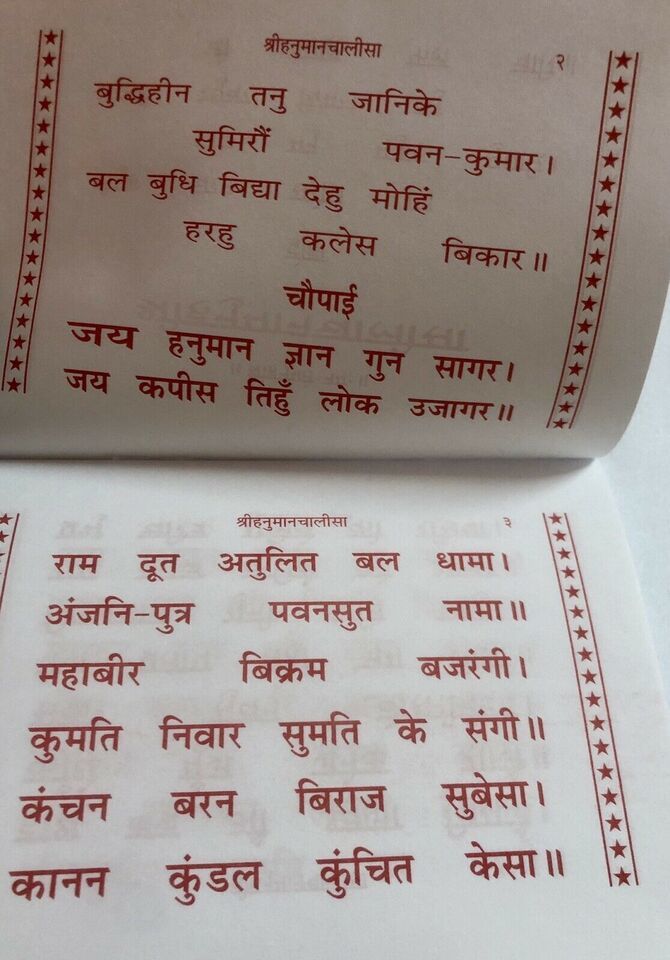 श्रीहनुमानचालीसा २
बुद्धिहीन तनु जानिके
सुमिरौं पवन-कुमार।
बल बुधि बिद्या देहु मोहिं
हरहु कलेस बिकार॥
चौपाई
जय हनुमान ज्ञान गुन सागर।
जय कपीस तिहुँ लोक उजागर॥
श्रीहनुमानचालीसा ३
राम दूत अतुलित बल धामा।
अंजनि-पुत्र पवनसुत नामा॥
महाबीर बिक्रम बजरंगी।
कुमति निवार सुमति के संगी॥
कंचन बरन बिराज सुबेसा।
कानन कुंडल कुंचित केसा॥